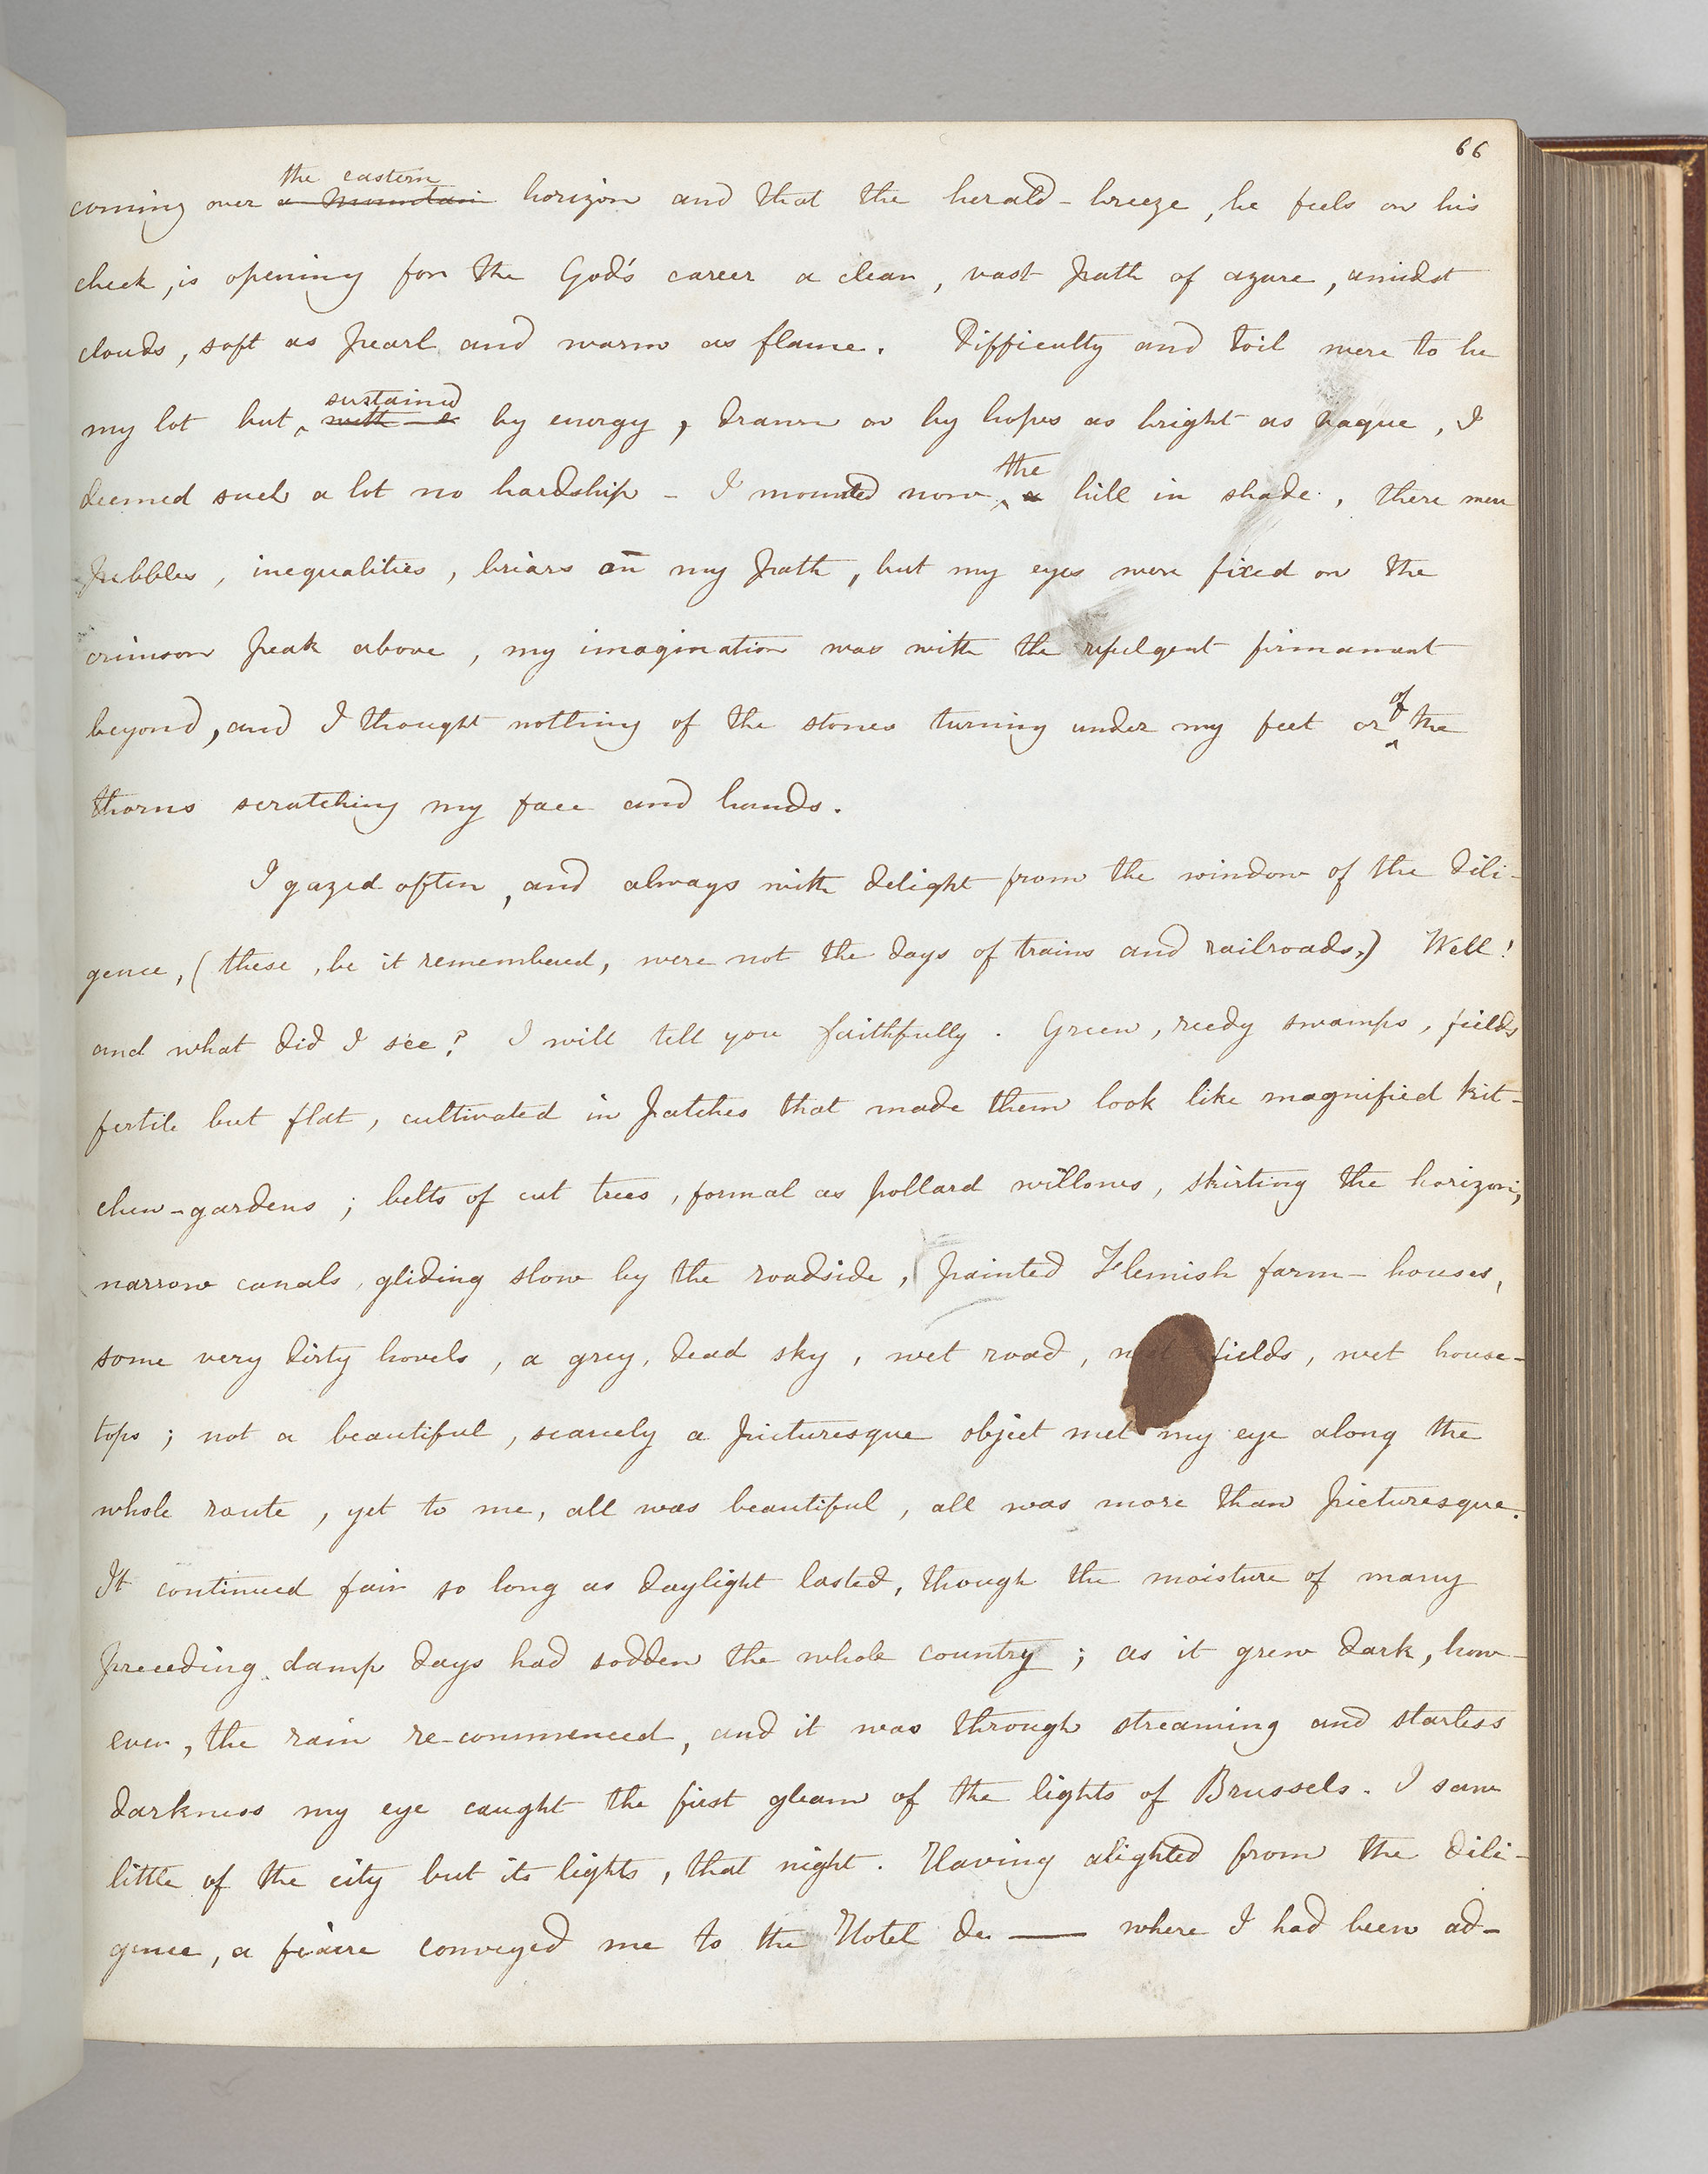 66
the eastern
coming over a mountain horizon and that the herald-breeze, he feels on his
cheek, is opening for the God's career a clear, vast path of azure, amidst
clouds, soft as pearl and warm as flame. Difficulty and toil were to be
sustained
my lot but with e by energy, drawn on by hopes as bright as vague, I
the
deemed such a lot no hardship - I mounted now a hill in shade, there were
pebbles, inequalities, briars in my path, but my eyes were fixed on the
crimson peak above, my imagination was with the refulgent firmamant
of
beyond, and I thought nothing of the stones turning under my feet or the
thorns scratching my face and hands.
I gazed often, and always with delight from the window of the dili-
gence, (these, be it remembered, were not the days of trains and railroads.) Well!
and what did I see? I will tell you faithfully. Green, reedy swamps, fields
fertile but flat, cultivated in patches that made them look like magnified kit-
chen-gardens; belts of cut trees, formal as pollard willows, skirting the horizon;
narrow canals, gliding slow by the roadside, painted Flemish farm-houses,
some very dirty hovels, a grey, dead sky, wet road, wet fields, wet house-
tops; not a beautiful, scarcely a picturesque object met my eye along the
whole route, yet to me, all was beautiful, all was more than picturesque.
It continued fair so long as daylight lasted, though the moisture of many
preceding damp days had sodden the whole country; as it grew dark, how-
ever, the rain re-commenced, and it was through streaming and starless
darkness my eye caught the first gleam of the lights of Brussels. I saw
little of the city but its lights, that night. Having alighted from the dili-
gence, a fiacre conveyed me to the Hotel de —— where I had been ad-